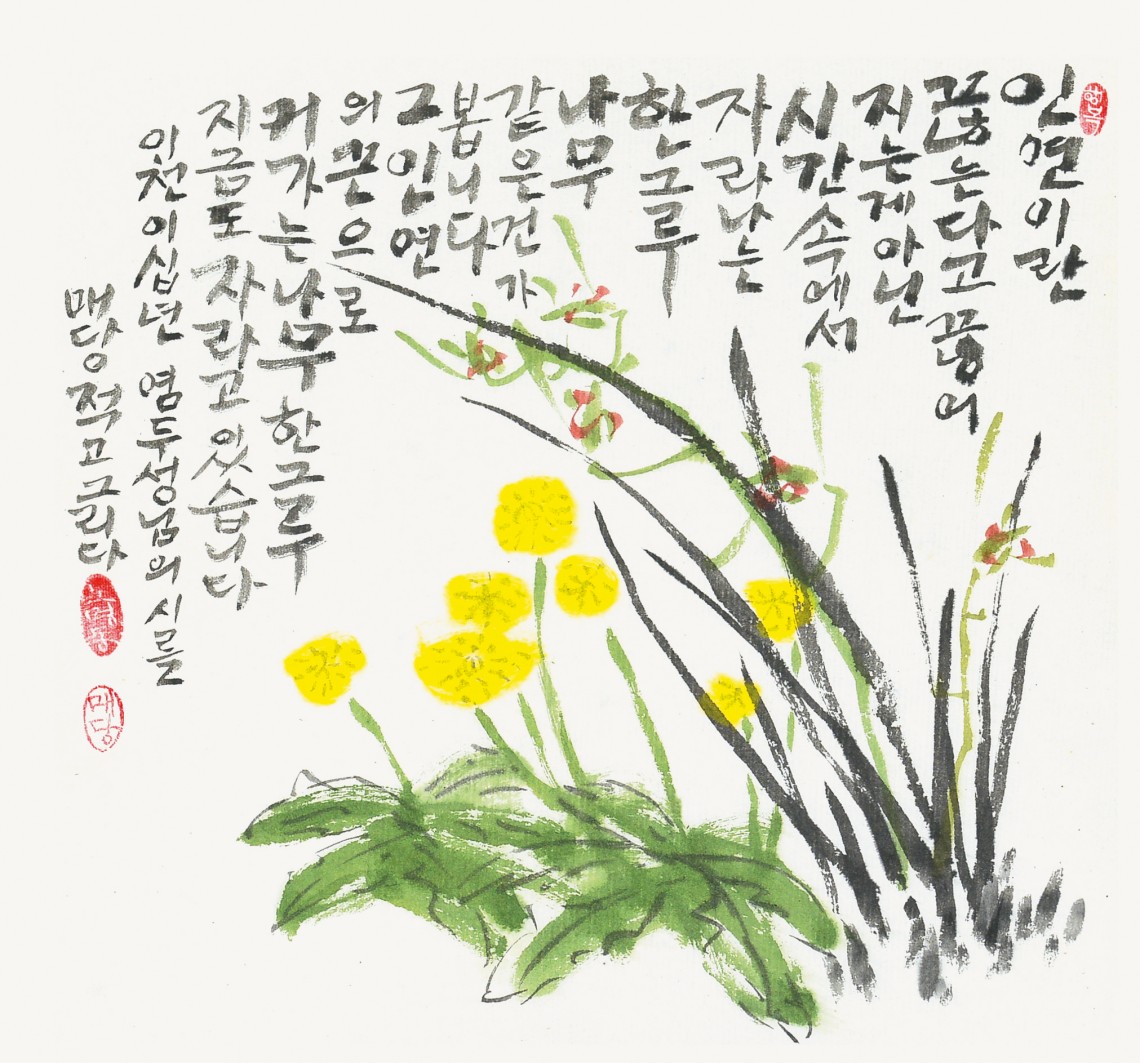 인연이란
끊는다고 끊어
지는게 아닌
시간 속에서
자라나는
한그루
나무
같은건가
봅니다
그 인연
의 끈으로
커가는 나무 한그루
지금도 자라고 있습니다
이천이십년 염두성님의 시를
매당 적고 그리다
매당